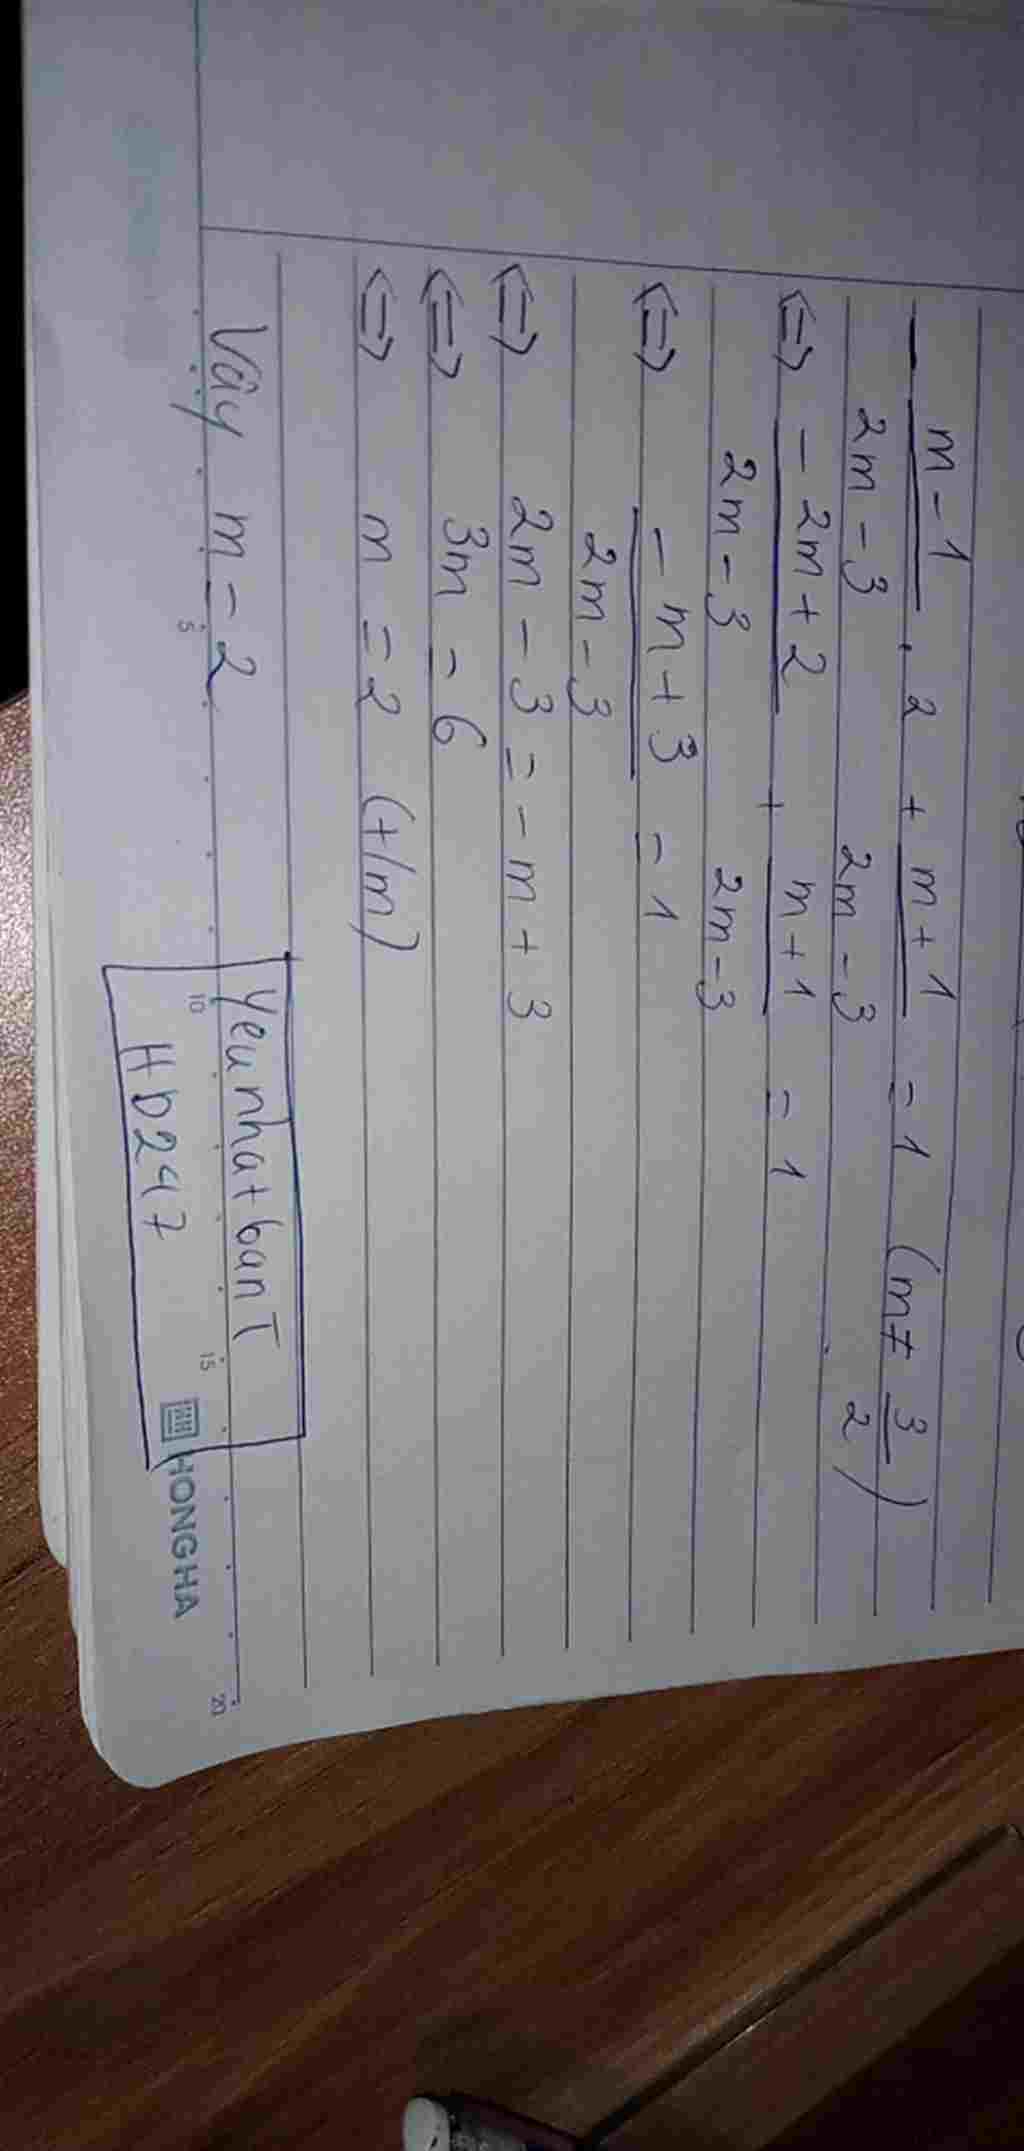 - (m - 1)/(2m - 3) . 2 + (m + 1)/(2m - 3) = 1 (m ≠ 3/2)
<=> (- 2m + 2)/(2m - 3) + (m + 1)/(2m - 3) = 1
<=> (- m + 3)/(2m - 3) = 1
<=> 2m - 3 = - m + 3
<=> 3m = 6
<=> m = 2 (t/m)
Vậy m = 2
YeunhatbanT
HD247
5 10 15 20
HONG HA